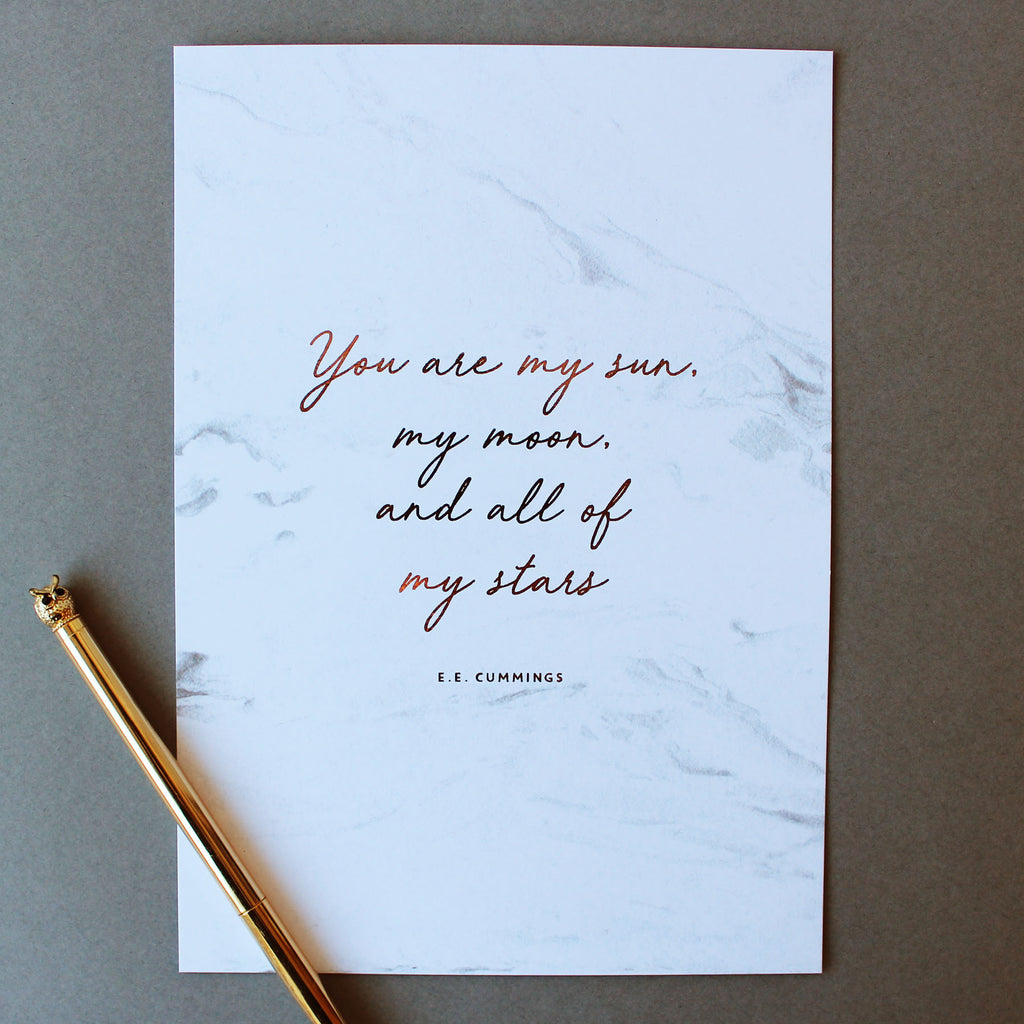 You are my sun,
my moon,
and all of
my stars
E.E. CUMMINGS